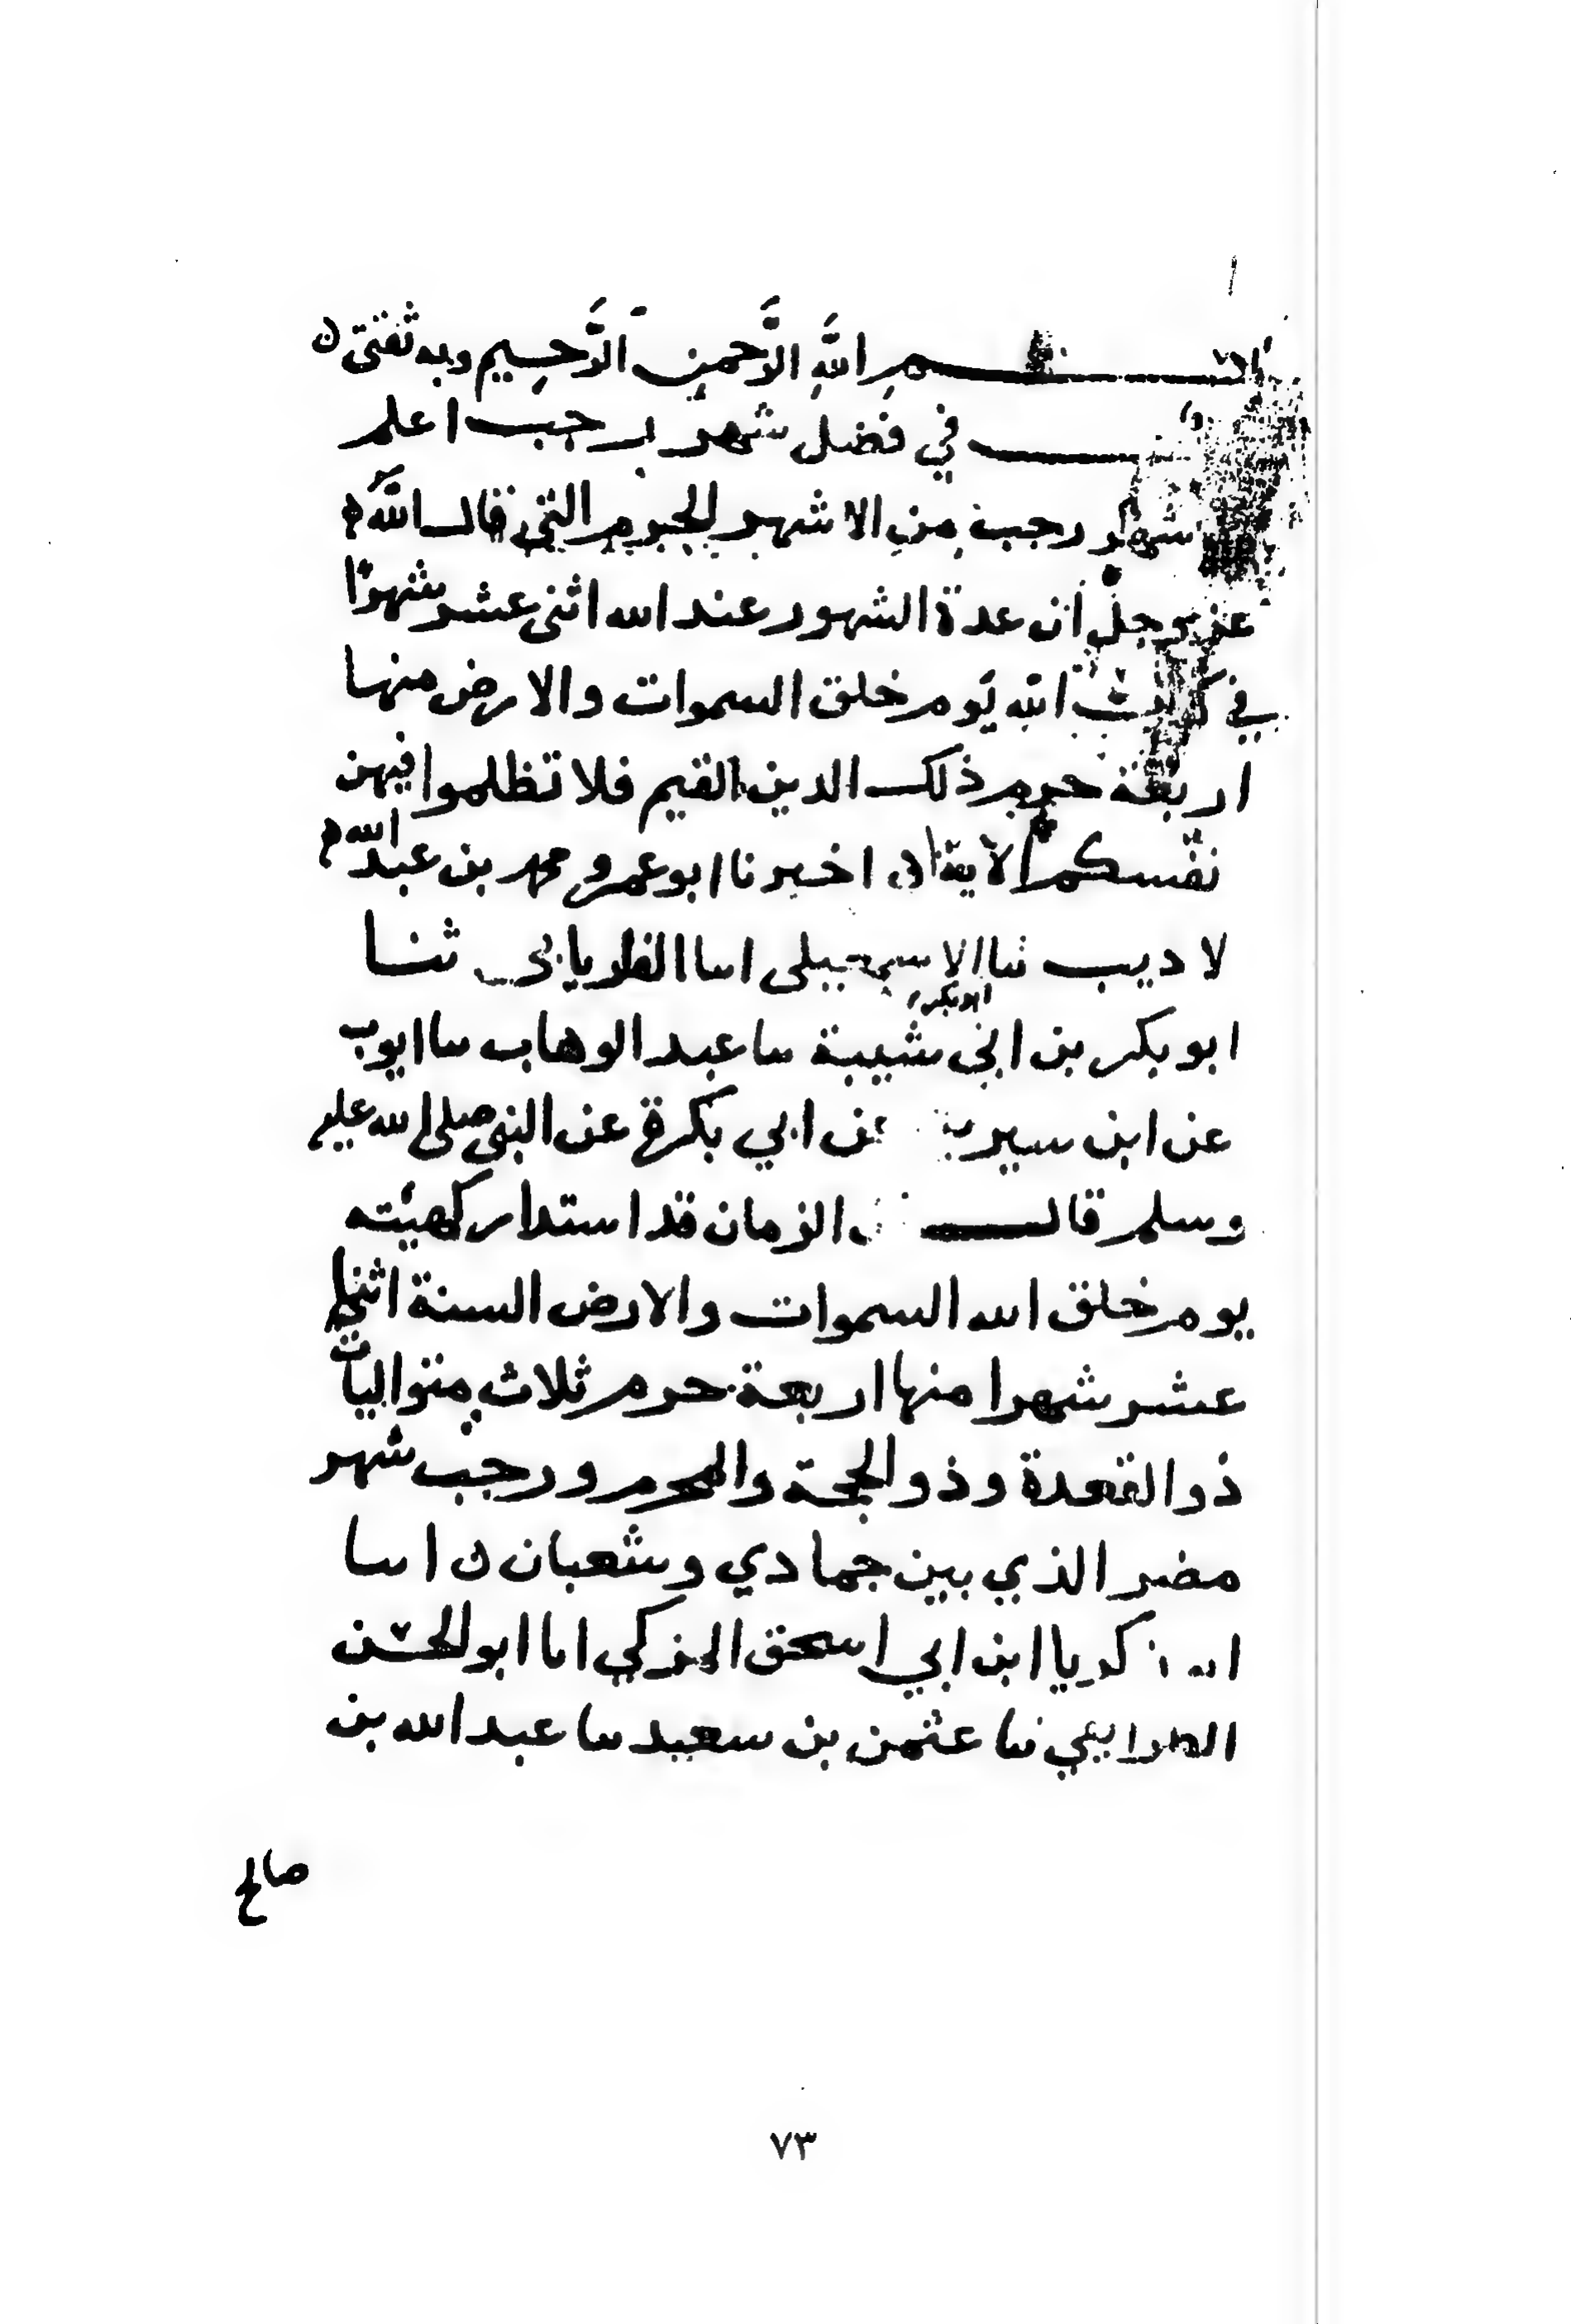 بسم الله الرحمن الرحيم وبه ثقتي
في فضل شهر رجب اعلم
شهر رجب من الاشهر الحرم التي قال الله
عز وجل ان عدة الشهور عند الله اثنى عشر شهرا
في كتاب الله يوم خلق السموات والارض منها
اربعة حرم ذلك الدين القيم فلا تظلموا فيهن
نفسكم الاية ن اخبرنا ابو عمرو محمد بن عبد الله
لاديب ثنا الاسمعيلي انا الفاريابي ثنا
ابو بكر بن ابي شيبة ثنا عبد الوهاب ثنا ايوب
ابو بكر
عن ابن سيرين عن ابي بكرة عن النبي صلى الله عليه
وسلم قال الزمان قد استدار كهيئته
يوم خلق الله السموات والارض السنة اثنا
عشر شهرا منها اربعة حرم ثلاث متواليات
ذوالقعدة وذوالحجة والمحرم ورجب شهر
مضر الذي بين جمادي وشعبان ن انبا
زكريا ابن ابي اسحق المزكي انا ابو الحسن
الطرايفي ثنا عثمن بن سعيد ثنا عبد الله بن
صالح
٧٣